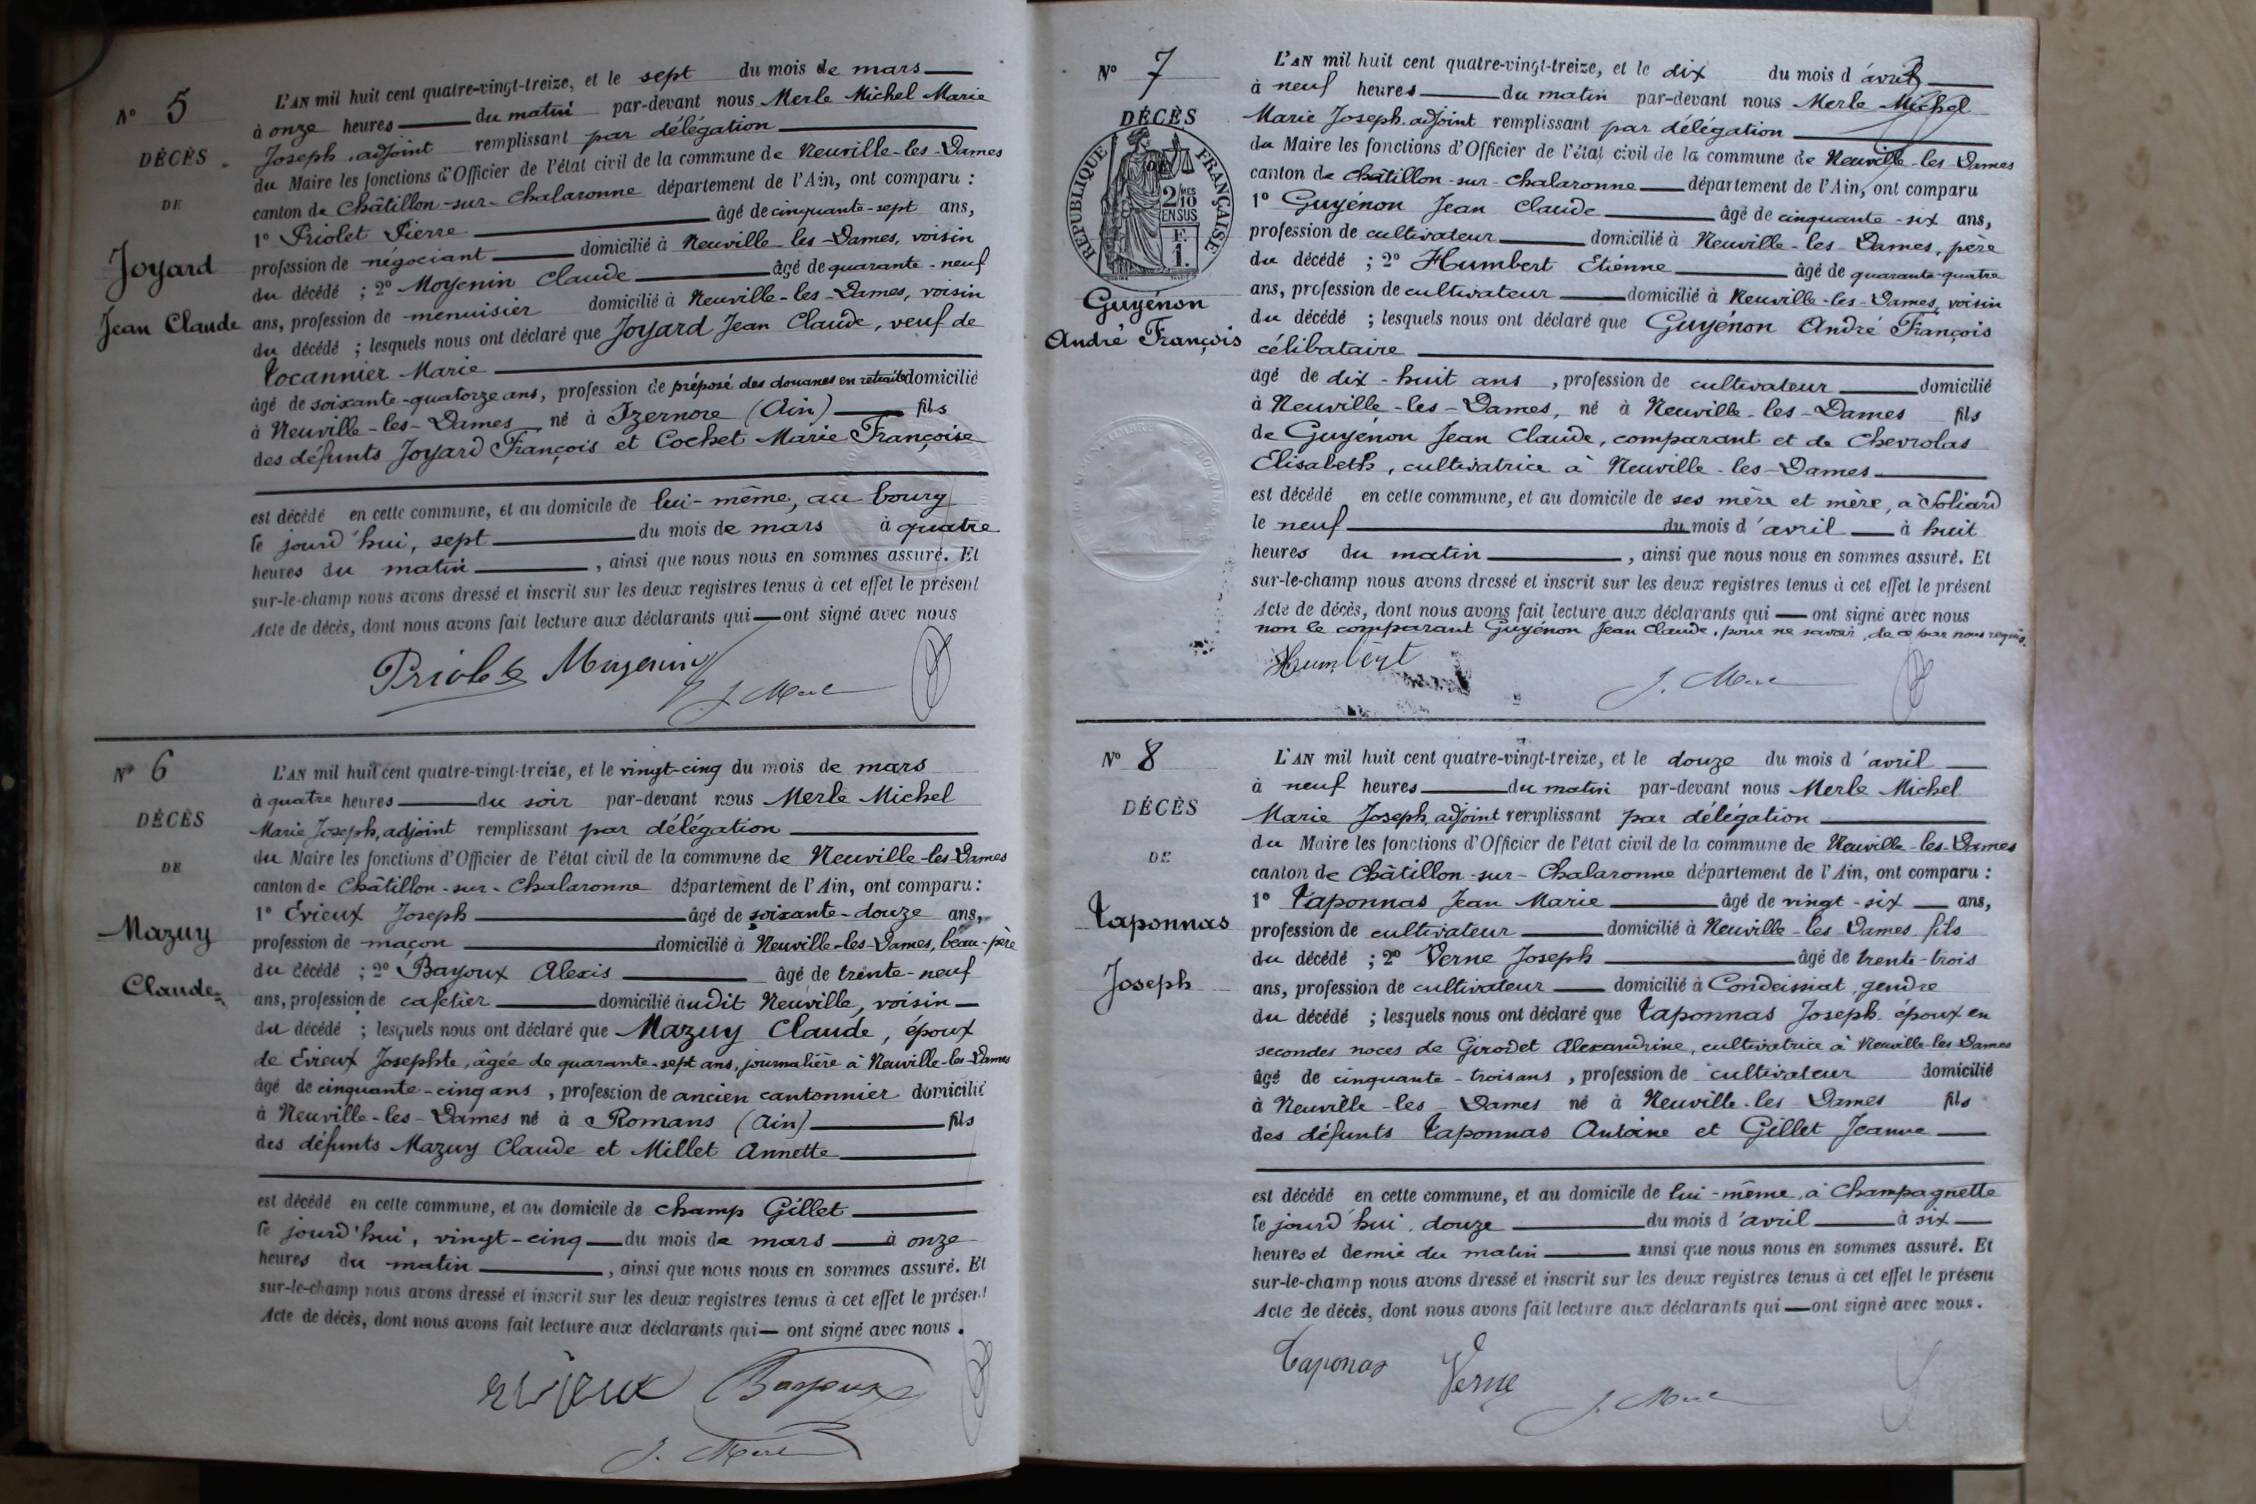 N° 5
DÉCÈS
DE
Joyard
Jean Claude
L'AN mil huit cent quatre-vingt-treize, et le sept du mois de mars
à onze heures du matin par-devant nous Merle Michel Marie
Joseph, adjoint remplissant par délégation
du Maire les fonctions d'Officier de l'état civil de la commune de Neuville-les-Dames
canton de Châtillon-sur-Chalaronne département de l'Ain, ont comparu :
1° Priolet Pierre âgé de cinquante-sept ans,
profession de négociant domicilié à Neuville-les-Dames, voisin
du décédé ; 2° Moyenin Claude âgé de quarante-neuf
ans, profession de menuisier domicilié à Neuville-les-Dames, voisin
du décédé ; lesquels nous ont déclaré que Joyard Jean Claude, veuf de
Tocannier Marie
âgé de soixante-quatorze ans, profession de préposé des douanes en retraite domicilié
à Neuville-les-Dames né à Izernore (Ain) fils
des défunts Joyard François et Cochet Marie Françoise
est décédé en cette commune, et au domicile de lui-même, au bourg
le jourd'hui, sept du mois de mars à quatre
heures du matin , ainsi que nous nous en sommes assuré. Et
sur-le-champ nous avons dressé et inscrit sur les deux registres tenus à cet effet le présent
Acte de décès, dont nous avons fait lecture aux déclarants qui ont signé avec nous
Priolet Moyenin
J. Merle
N° 6
DÉCÈS
DE
Mazuy
Claude
L'AN mil huit cent quatre-vingt-treize, et le vingt-cinq du mois de mars
à quatre heures du soir par-devant nous Merle Michel
Marie Joseph, adjoint remplissant par délégation
du Maire les fonctions d'Officier de l'état civil de la commune de Neuville-les-Dames
canton de Châtillon-sur-Chalaronne département de l'Ain, ont comparu :
1° Evieux Joseph âgé de soixante-douze ans,
profession de maçon domicilié à Neuville-les-Dames, beau-père
du décédé ; 2° Bayoux Alexis âgé de trente-neuf
ans, profession de cafetier domicilié audit Neuville, voisin
du décédé ; lesquels nous ont déclaré que Mazuy Claude, époux
de Evieux Josephte, âgée de quarante-sept ans, journalière à Neuville-les-Dames
âgé de cinquante-cinq ans, profession de ancien cantonnier domicilié
à Neuville-les-Dames né à Romans (Ain) fils
des défunts Mazuy Claude et Millet Annette
est décédé en cette commune, et au domicile de champ Gillet
le jourd'hui, vingt-cinq du mois de mars à onze
heures du matin , ainsi que nous nous en sommes assuré. Et
sur-le-champ nous avons dressé et inscrit sur les deux registres tenus à cet effet le présent
Acte de décès, dont nous avons fait lecture aux déclarants qui ont signé avec nous.
evieux Bayoux
J. Merle
N° 7
DÉCÈS
RÉPUBLIQUE FRANÇAISE
2/10 MES
EN SUS
F.
1.
Guyénon
André François
L'AN mil huit cent quatre-vingt-treize, et le dix du mois d'avril
à neuf heures du matin par-devant nous Merle Michel
Marie Joseph, adjoint remplissant par délégation
du Maire les fonctions d'Officier de l'état civil de la commune de Neuville-les-Dames
canton de Châtillon-sur-Chalaronne département de l'Ain, ont comparu
1° Guyénon Jean Claude âgé de cinquante-six ans,
profession de cultivateur domicilié à Neuville-les-Dames, père
du décédé ; 2° Humbert Etienne âgé de quarante-quatre
ans, profession de cultivateur domicilié à Neuville-les-Dames, voisin
du décédé ; lesquels nous ont déclaré que Guyénon André François
célibataire
âgé de dix-huit ans, profession de cultivateur domicilié
à Neuville-les-Dames, né à Neuville-les-Dames fils
de Guyénon Jean Claude, comparant et de Chevrolas
Elisabeth, cultivatrice à Neuville-les-Dames
est décédé en cette commune, et au domicile de ses mère et mère, à Soliard
le neuf du mois d'avril à huit
heures du matin , ainsi que nous nous en sommes assuré. Et
sur-le-champ nous avons dressé et inscrit sur les deux registres tenus à cet effet le présent
Acte de décès, dont nous avons fait lecture aux déclarants qui ont signé avec nous
non le comparant Guyénon Jean Claude, pour ne savoir, de ce par nous requis.
Humbert
J. Merle
N° 8
DÉCÈS
DE
Taponnas
Joseph
L'AN mil huit cent quatre-vingt-treize, et le douze du mois d'avril
à neuf heures du matin par-devant nous Merle Michel
Marie Joseph, adjoint remplissant par délégation
du Maire les fonctions d'Officier de l'état civil de la commune de Neuville-les-Dames
canton de Châtillon-sur-Chalaronne département de l'Ain, ont comparu :
1° Taponnas Jean Marie âgé de vingt-six ans,
profession de cultivateur domicilié à Neuville-les-Dames fils
du décédé ; 2° Verne Joseph âgé de trente-trois
ans, profession de cultivateur domicilié à Condeissiat, gendre
du décédé ; lesquels nous ont déclaré que Taponnas Joseph, époux en
secondes noces de Girodet Alexandrine, cultivatrice à Neuville-les-Dames
âgé de cinquante-trois ans, profession de cultivateur domicilié
à Neuville-les-Dames né à Neuville-les-Dames fils
des défunts Taponnas Antoine et Gillet Jeanne
est décédé en cette commune, et au domicile de lui-même, à Champagnette
le jourd'hui, douze du mois d'avril à six
heures et demie du matin ainsi que nous nous en sommes assuré. Et
sur-le-champ nous avons dressé et inscrit sur les deux registres tenus à cet effet le présent
Acte de décès, dont nous avons fait lecture aux déclarants qui ont signé avec nous.
Taponas Verne
J. Merle